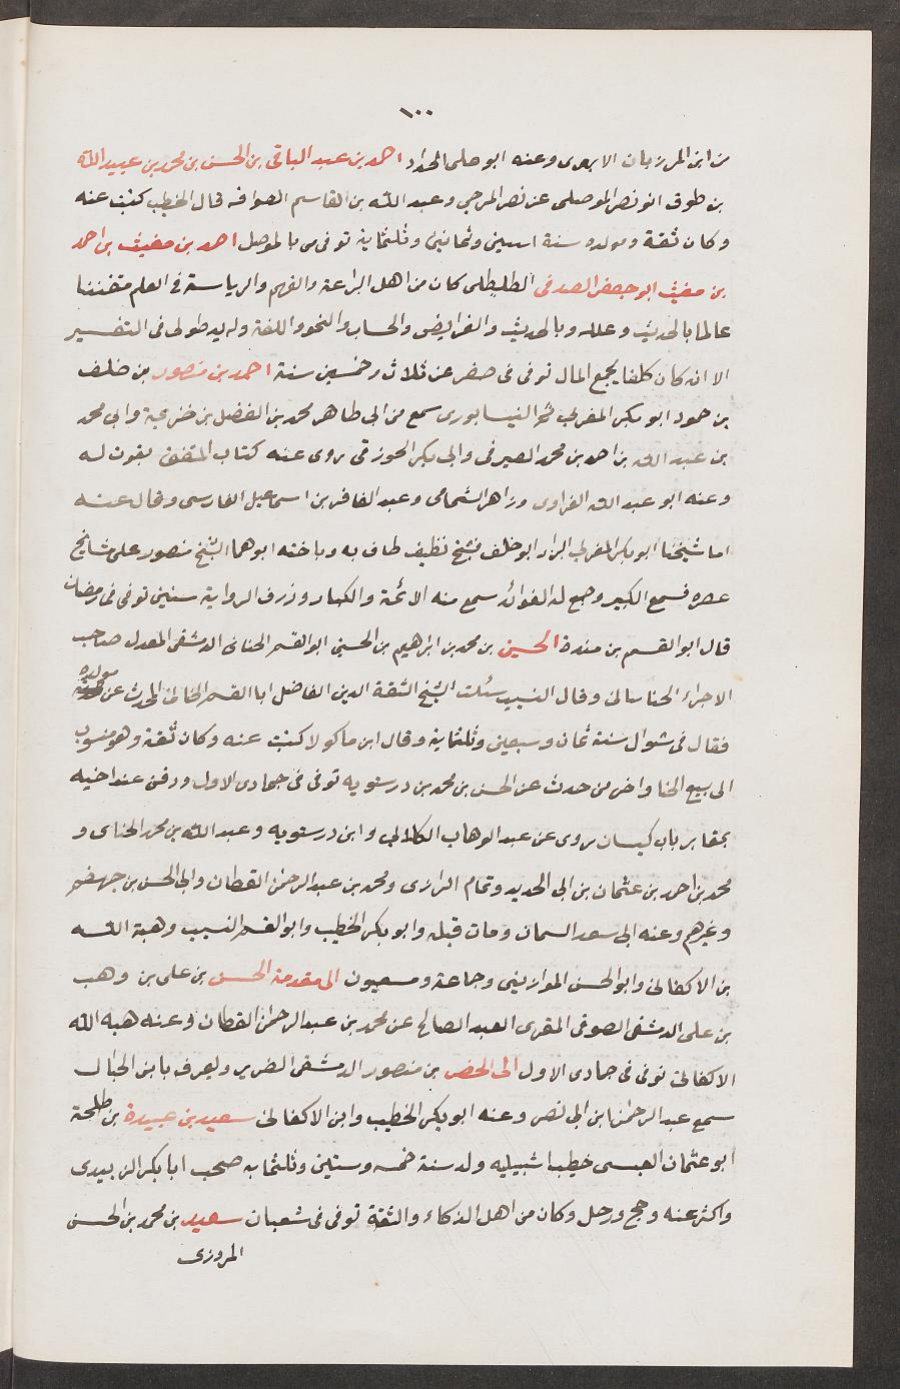 ١٠٠
من ابن المرزبان الابهرى وعنه ابو على الحداد احمد بن عبد الباقى بن الحسن بن محمد بن عبيد الله
بن طوق ابو نصر الموصلى عن نصر المرجى وعبد الله بن القاسم الصواف قال الخطيب كتبت عنه
وكان ثقة ومولده سنة اثنين وثمانين وثلثماية توفى بالموصل احمد بن مغيث بن احمد
بن مغيث ابو جعفر الصدفى الطليطلى كان من اهل البراعة والفهم والرياسة فى العلم متفننا
عالما بالحديث وعلله وبالحديث والفرايض والحساب والنحو واللغة وله يد طولى فى التفسير
الا انه كان كلفا بجمع المال توفى فى صفر عن ثلاث وخمسين سنة احمد بن منصور بن خلف
بن حمود ابو بكر المغربى ثم النيسابورى سمع من ابى طاهر محمد بن الفضل بن خزيمة وابى محمد
بن عبد الله بن احمد بن محمد الصيرفى وابى بكر الجوزقى روى عنه كتاب المتفق بفوت له
وعنه ابو عبد الله الفراوى وزاهر الشحامى وعبد الغافر بن اسماعيل الفارسى وقال عنه
اما شيخنا ابو بكر المغربى البزاز ابو خلف فشيخ نظيف طاف به وباخته ابوهما الشيخ منصور على مشايخ
عصره فسمع الكبير وجمع له الفوائد سمع منه الائمة والكبار ورزق الرواية سنين توفى فى رمضان
قال ابو القسم بن مندة الحسين بن محمد بن ابراهيم بن الحسين ابو القسم الحنائى الدمشقى المعدل صاحب
الاجزاء الحنائيات وقال النسيب سئلت الشيخ الثقة الدين الفاضل ابا القسم الحنائى المحدث عن مولده
فقال فى شوال سنة ثمان وسبعين وثلثماية وقال ابن ماكولا كتبت عنه وكان ثقة وهو منسوب
الى بيع الحنا واخر من حدث عن الحسن بن محمد بن درستويه توفى فى جمادى الاول ودفن عند اخيه
بمقابر باب كيسان روى عن عبد الوهاب الكلابى وابن درستويه وعبد الله بن محمد الحنائى و
محمد بن احمد بن عثمان بن ابى الحديد وتمام الرازى ومحمد بن عبد الرحمن القطان وابى الحسن بن جهضم
وغيرهم وعنه ابى سعد السمان ومات قبله وابو بكر الخطيب وابو القسم النسيب وهبة الله
بن الاكفانى وابو الحسن الموازينى وجماعة ومسعيون الى مقدمة الحسن بن على بن وهب
بن على الدمشقى الصوفى المقرى العبد الصالح عن محمد بن عبد الرحمن القطان وعنه هبه الله
الاكفانى توفى فى جمادى الاول الى الخضر بن منصور الدمشقى الضرير ويعرف بابن الحبال
سمع عبد الرحمن ابن ابى نصر وعنه ابو بكر الخطيب وابن الاكفانى سعيد بن عبيدة بن طلحة
ابو عثمان العبسى خطيب اشبيليه ولد سنة خمسه وستين وثلثمايه صحب ابا بكر الزبيدى
واكثر عنه وحج ورحل وكان من اهل الذكاء والثقة توفى فى شعبان سعيد بن محمد بن الحسن
المروزى